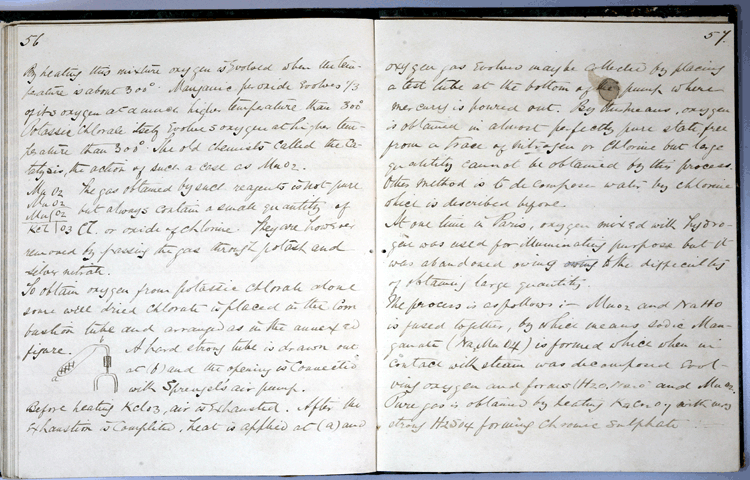 56
By heating this mixture oxygen is Evolved when the tem-
perature is about 300°. Manganic peroxide Evolves 1/3
of its oxygen at a much higher temperature than 300°
Potassic Chlorate itself Evolves oxygen at higher tem-
perature than 300°. The old Chemists called the Ca-
talysis, the action of such a case as MnO2.
MnO2 The gas obtained by such reagents is not pure
MnO2
MnO2 but always contain a small quantity of
KCl O3 Cl. or oxide of Chlorine. They are however
removed by passing the gas through potash and
silver nitrate.
To obtain oxygen from potassic Chlorate alone
some well dried Chlorate is placed in the Com
bustion tube and arranged as in the annexed
figure. A hard strong tube is drawn out
at (b) and the opening is Connected
with Sprengel's air pump.
Before heating KClO3, air is Exhausted. After the
Exhaustion is Complete, heat is applied at (a) and
57.
oxygen gas Evolves may be collected by placing
a test tube at the bottom of the pump where
mercury is poured out. By this means, oxygen
is obtained in almost perfectly pure state, free
from a trace of Nitrogen or Chlorine but large
quantity cannot be obtained by this process.
Other method is to decompose water by chlorine
which is described before.
At one time in Paris, oxygen mixed with hydro-
gen was used for illuminating purpose but it
was abandoned owing to the difficulties
of obtaining large quantity.
The process is as follows :- MnO2 and NaHO
is fused together, by which means, sodic Man-
ganate (Na2MnO4) is formed which when in
Contact with steam was decomposed Evol-
ving oxygen and forms and MnO2.
Pure gas is obtained by heating with
strong H2SO4 forming Chromic Sulphate